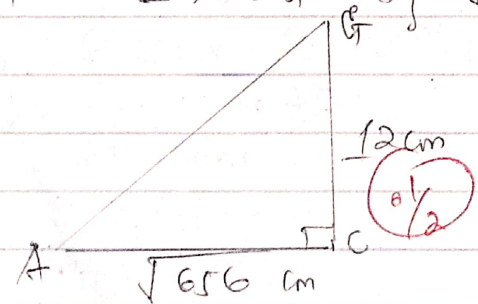 G
12cm
01/2
A
C
√656 cm